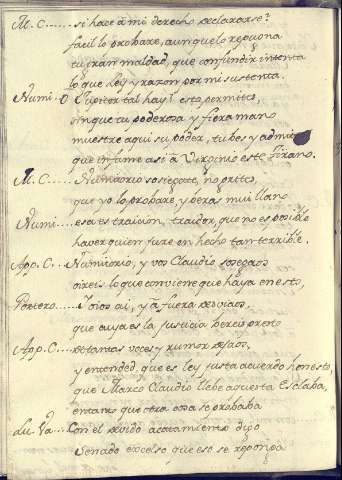 M. C..... si hace à mi derecho declararse?
facil lo probare, aunque lo repugna
tu gran maldad, que confundir intenta
lo que ley y razon por mi sustenta.
Numi. O Jupiter tal hay! esto permites,
sin que tu poderosa y fiera mano
muestre aqui su poder,
que infame asi à Virginio este Tirano.
M. C..... Numitorio sosiegate, no grites,
que yo lo probare, y veras mui llano
Numi.... esa es traicion, traidor, que no es posible
haver quien jure en hecho tan terrible.
App. C... Numitorio, y vos Claudio sosegaos
oireis lo que conviene que haya en esto,
Portero..... Idios ai, y à fuera desviaos,
que suya es la justicia
App. C.... de tantas voces y rumor dejaos,
y entended, que es ley justa acuerdo honesto,
que Marco Claudio llebe aquesta Esclaba,
entanto que otra cosa se probaba
Lu. Va.... Con el devido acatamiento digo
Senado excelso que eso se reponga